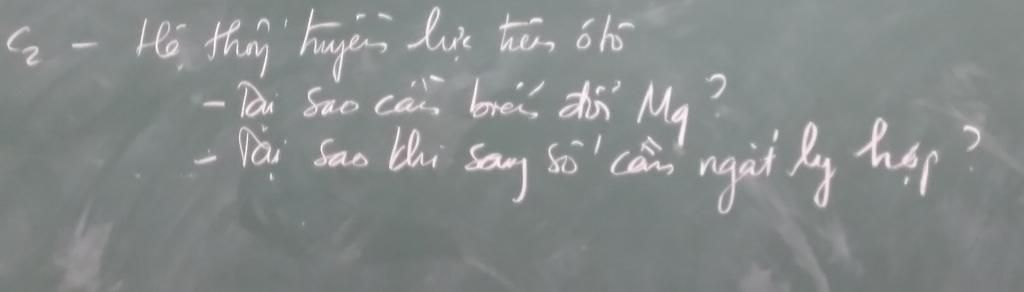 C2 - Hệ thống truyền lực trên ôtô
- Tại sao cần biến đổi Mq?
- Tại sao khi sang số cần ngắt ly hợp?